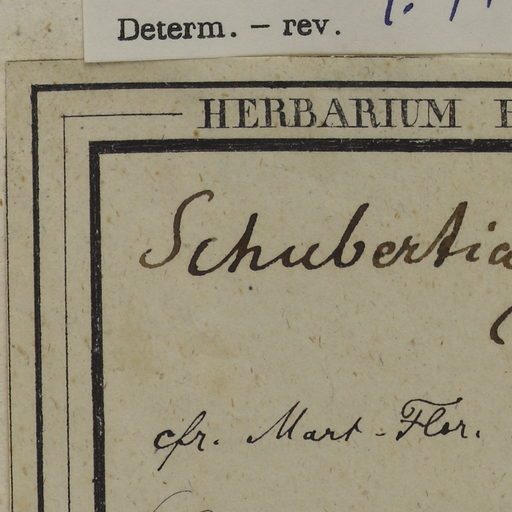 Determ. – rev.
HERBARIUM
Schubertia
cfr. Mart - Flor.